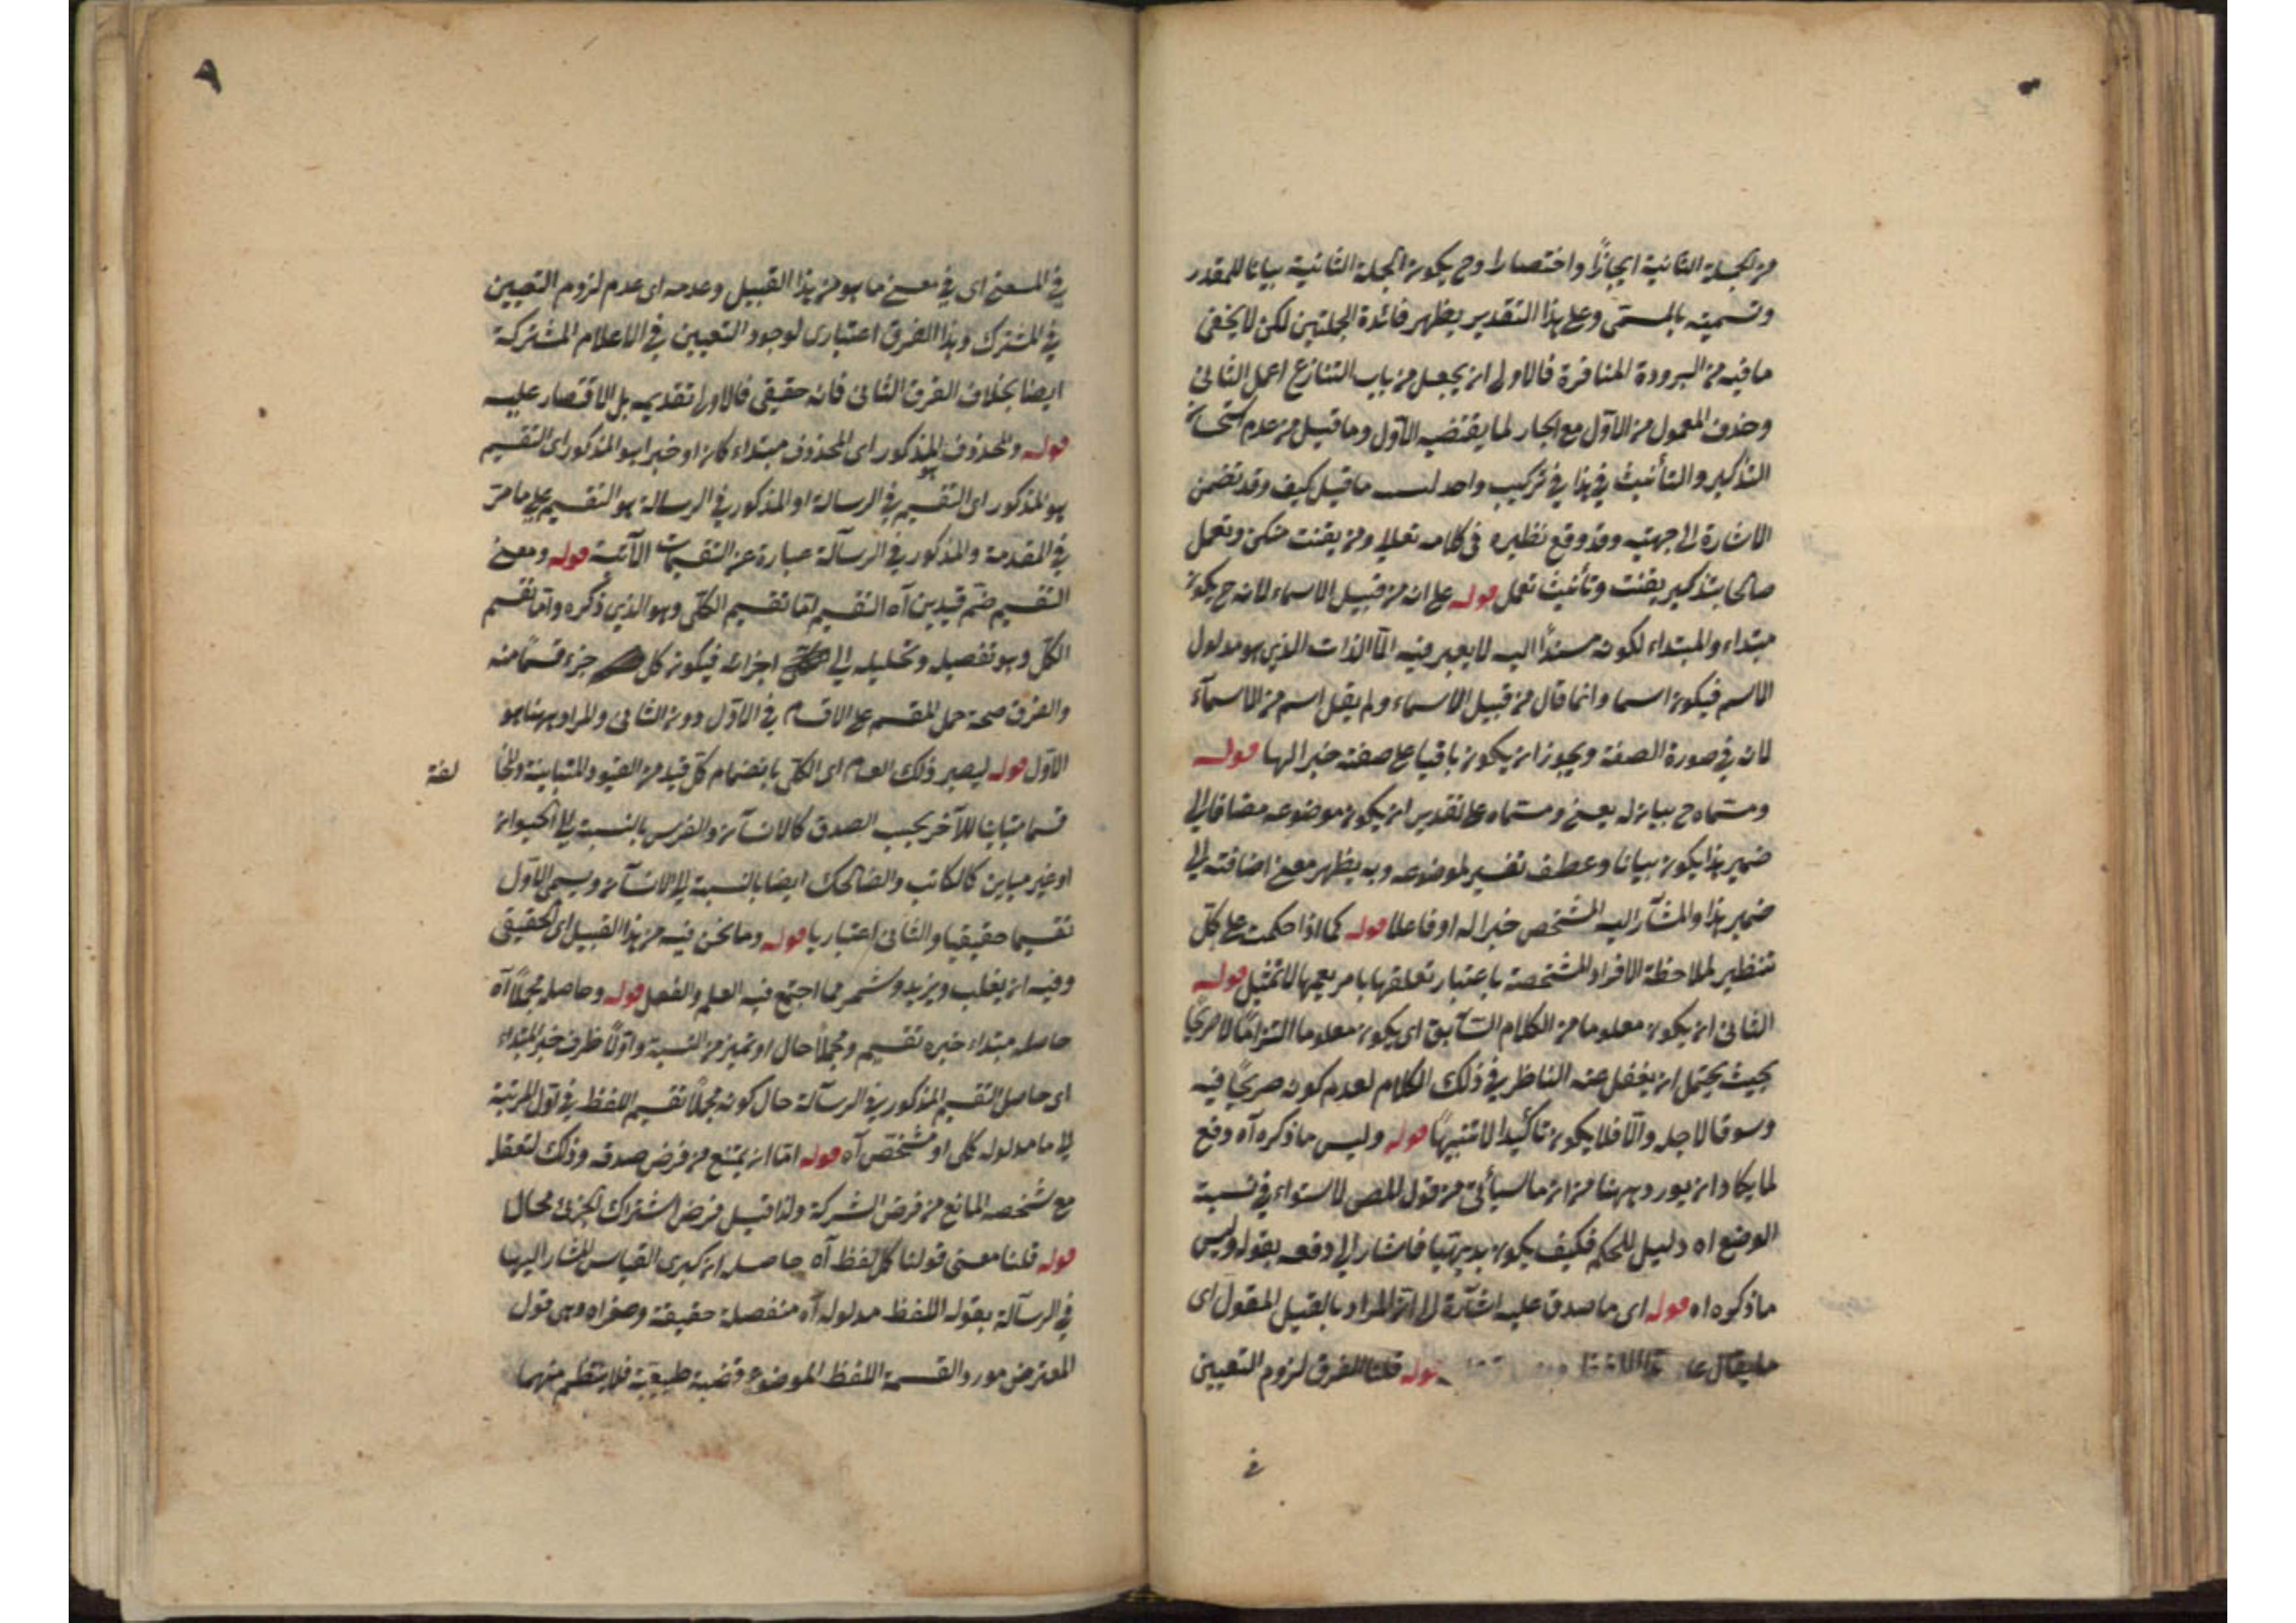 من الجملة الثانية ايجازا واختصارا وح يكون الجملة الثانية بيانا للمقدر
وتسميته بالمسمى وعلى هذا التقدير يظهر فائدة الجملتين لكن لا يخفى
مافيه من البرودة المنافرة فالاولى ان يجعل من باب التنازع اعمل الثانى
وحذف المعمول من الاول مع الجار لما يقتضيه الاول وما قيل من عدم استحسان
التذكير والتأنيث في هذا في تركيب واحد ليس ماقيل كيف وقد تضمن
الاشارة الى جهتيه وقد وقع نظيره فى كلامه تعالى ومن يقنت منكن وتعمل
صالحا بتذكير يقنت وتأنيث تعمل قوله على انه من قبيل الاسماء لانه ح يكون
مبتداء والمبتداء لكونه مسندا اليه لا يعبر فيه الا الذات الذي هو مدلول
الاسم فيكون اسما وانما قال من قبيل الاسماء ولم يقل اسم من الاسمآء
لانه في صورة الصفة ويجوز ان يكون باقيا على صفته خبرا لها قوله
ومسماه ح بيان له يعنى ومسماه على تقدير ان يكون موضوعه مضافا الى
ضمير هذا يكون بيانا وعطف تفسير لموضوعه وبه يظهر معنى اضافته الى
ضمير هذا والمشآر اليه المشخص خبرا له او فاعلا قوله كما اذا حكمت على كل
تنظير لملاحظة الافراد المشخصة باعتبار تعلقها بامر يعمها لا تمثيل قوله
الثانى ان يكون معلوما من الكلام السآبق اى يكون معلوما التزاما لا صريحا
بحيث يحتمل ان يغفل عنه الناظر في ذلك الكلام لعدم كونه صريحا فيه
وسوقا لاجله والا فلا يكون تأكيدا لا تنبيها قوله وليس ماذكره آه دفع
لما يكاد ان يورد ههنا من ان ما سيأتى من قول المص لاستواء في نسبة
الوضع اه دليل للحكم فكيف يكون بديهيا فاشار الى دفعه بقوله وليس
ماذكره اه قوله اى ما صدق عليه اشآرة الى ان المراد بالقبيل المقول اى
ما يقال على هذا اللفظ قوله قلنا الفرق لزوم التعيين
في
٨
في المعنى اى في معنى ما هو من هذا القبيل وعدمه اى عدم لزوم التعيين
في المشترك وهذا الفرق اعتبارى لوجود التعيين في الاعلام المشتركة
ايضا بخلاف الفرق الثانى فانه حقيقى فالاولى تقديمه بل الاقتصار عليه
قوله والمحذوف المذكور اى المحذوف مبتداء كان او خبرا هو المذكور اى التقسيم
هو المذكور اى التقسيم في الرسالة او المذكور في الرسالة هو التقسيم على ما مر
في المقدمة والمذكور في الرسآلة عبارة عن التقسيمات الآتية قوله ومعنى
التقسيم ضم قيدين آه التقسيم اما تقسيم الكلى وهو الذي ذكره واما تقسيم
الكل وهو تفصيله وتحليله الى اجزائه فيكون كل جزء قسما منه
والفرق صحة حمل المقسم على الاقسام في الاول دون الثانى والمراد ههنا هو
الاول قوله ليصير ذلك العام اى الكلى بانضمام كل قيد من القيود المتباينة والمخا
لفة
قسما مباينا للآخر بحسب الصدق كالانسآن والفرس بالنسبة الى الحيوان
او غير مباين كالكاتب والضاحك ايضا بالنسبة الى الانسآن ويسمى الاول
تقسيما حقيقيا والثانى اعتباريا قوله وما نحن فيه من هذا القبيل اى الحقيقى
وفيه ان يغلب ويزيد وشمر مما اجتمع فيه العلم والفعل قوله وحاصله مجملا آه
حاصله مبتداء خبره تقسيم ومجملا حال او تميز من النسبة واولا ظرف خبر المبتداء
اى حاصل التقسيم المذكور في الرسآلة حال كونه مجملا تقسيم اللفظ في اول المرتبة
الى ما مدلوله كلى او مشخص آه قوله اما ان يمتنع من فرض صدقه وذلك لتعقله
مع تشخصه المانع من فرض الشركة ولذا قيل فرض اشتراك الجزئى محال
قوله قلنا معنى قولنا كل لفظ آه حاصله ان كبرى القياس المشار اليها
في الرسآلة بقوله اللفظ مدلوله آه منفصلة حقيقة وصغراه وهى قول
المعترض مورد القسمة اللفظ الموضوع قضية طبيعية فلا ينتظم منهما